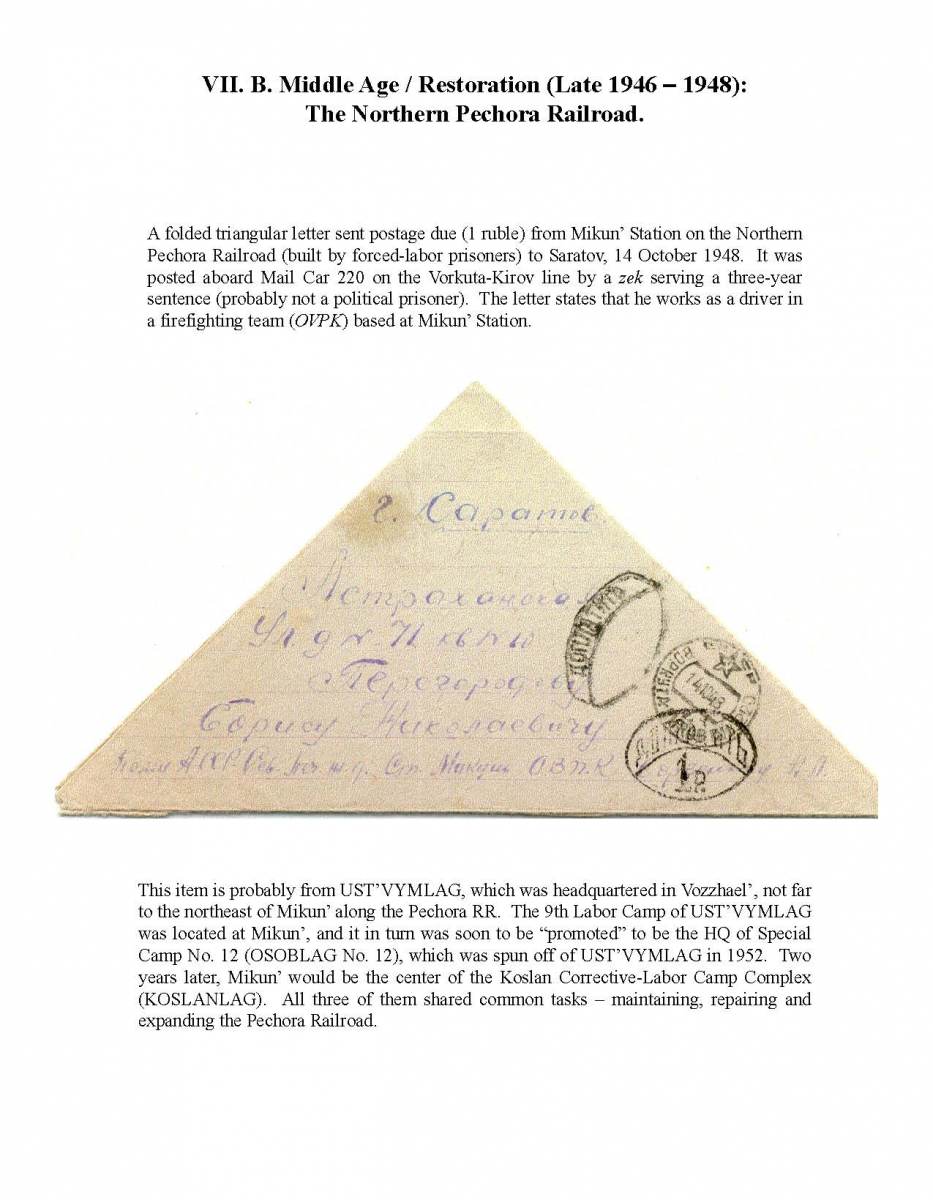 VII. B. Middle Age / Restoration (Late 1946 – 1948):
The Northern Pechora Railroad.
A folded triangular letter sent postage due (1 ruble) from Mikun’ Station on the Northern
Pechora Railroad (built by forced-labor prisoners) to Saratov, 14 October 1948.  It was
posted aboard Mail Car 220 on the Vorkuta-Kirov line by a zek serving a three-year
sentence (probably not a political prisoner).  The letter states that he works as a driver in
a firefighting team (OVPK) based at Mikun’ Station.
г. Саратов
Астраханская
Ул д № 71 кв
Перегородову
Борису Николаевичу
Коми АССР Сев. Печ ж.д. Ст. Микунь ОВПК
ДОПЛАТИТЬ
ВОРКУТА
141048
ДОПЛАТИТЬ
1 Р.
This item is probably from UST’VYMLAG, which was headquartered in Vozzhael’, not far
to the northeast of Mikun’ along the Pechora RR.  The 9th Labor Camp of UST’VYMLAG
was located at Mikun’, and it in turn was soon to be “promoted” to be the HQ of Special
Camp No. 12 (OSOBLAG No. 12), which was spun off of UST’VYMLAG in 1952.  Two
years later, Mikun’ would be the center of the Koslan Corrective-Labor Camp Complex
(KOSLANLAG).  All three of them shared common tasks – maintaining, repairing and
expanding the Pechora Railroad.